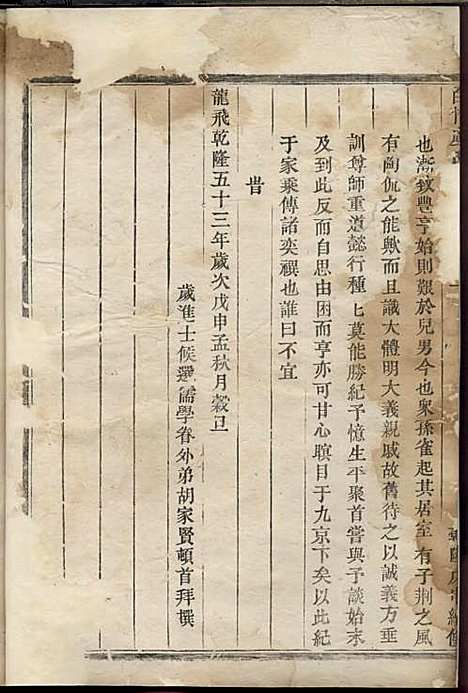 也漸致豐亨始則艱於兒男今也衆孫雀起其居室有子荆之風
有陶侃之能歟而且識大體明大義親戚故舊待之以誠義方垂
訓尊師重道懿行種〻莫能勝紀予憶生平聚首嘗與予談始末
及到此反而自思由困而亨亦可甘心瞑目于九京下矣以此紀
于家乘傳諸奕禩也誰曰不宜
旹
龍飛乾隆五十三年歲次戊申孟秋月穀旦
歲進士候選儒學眷外弟胡家賢頓首拜撰